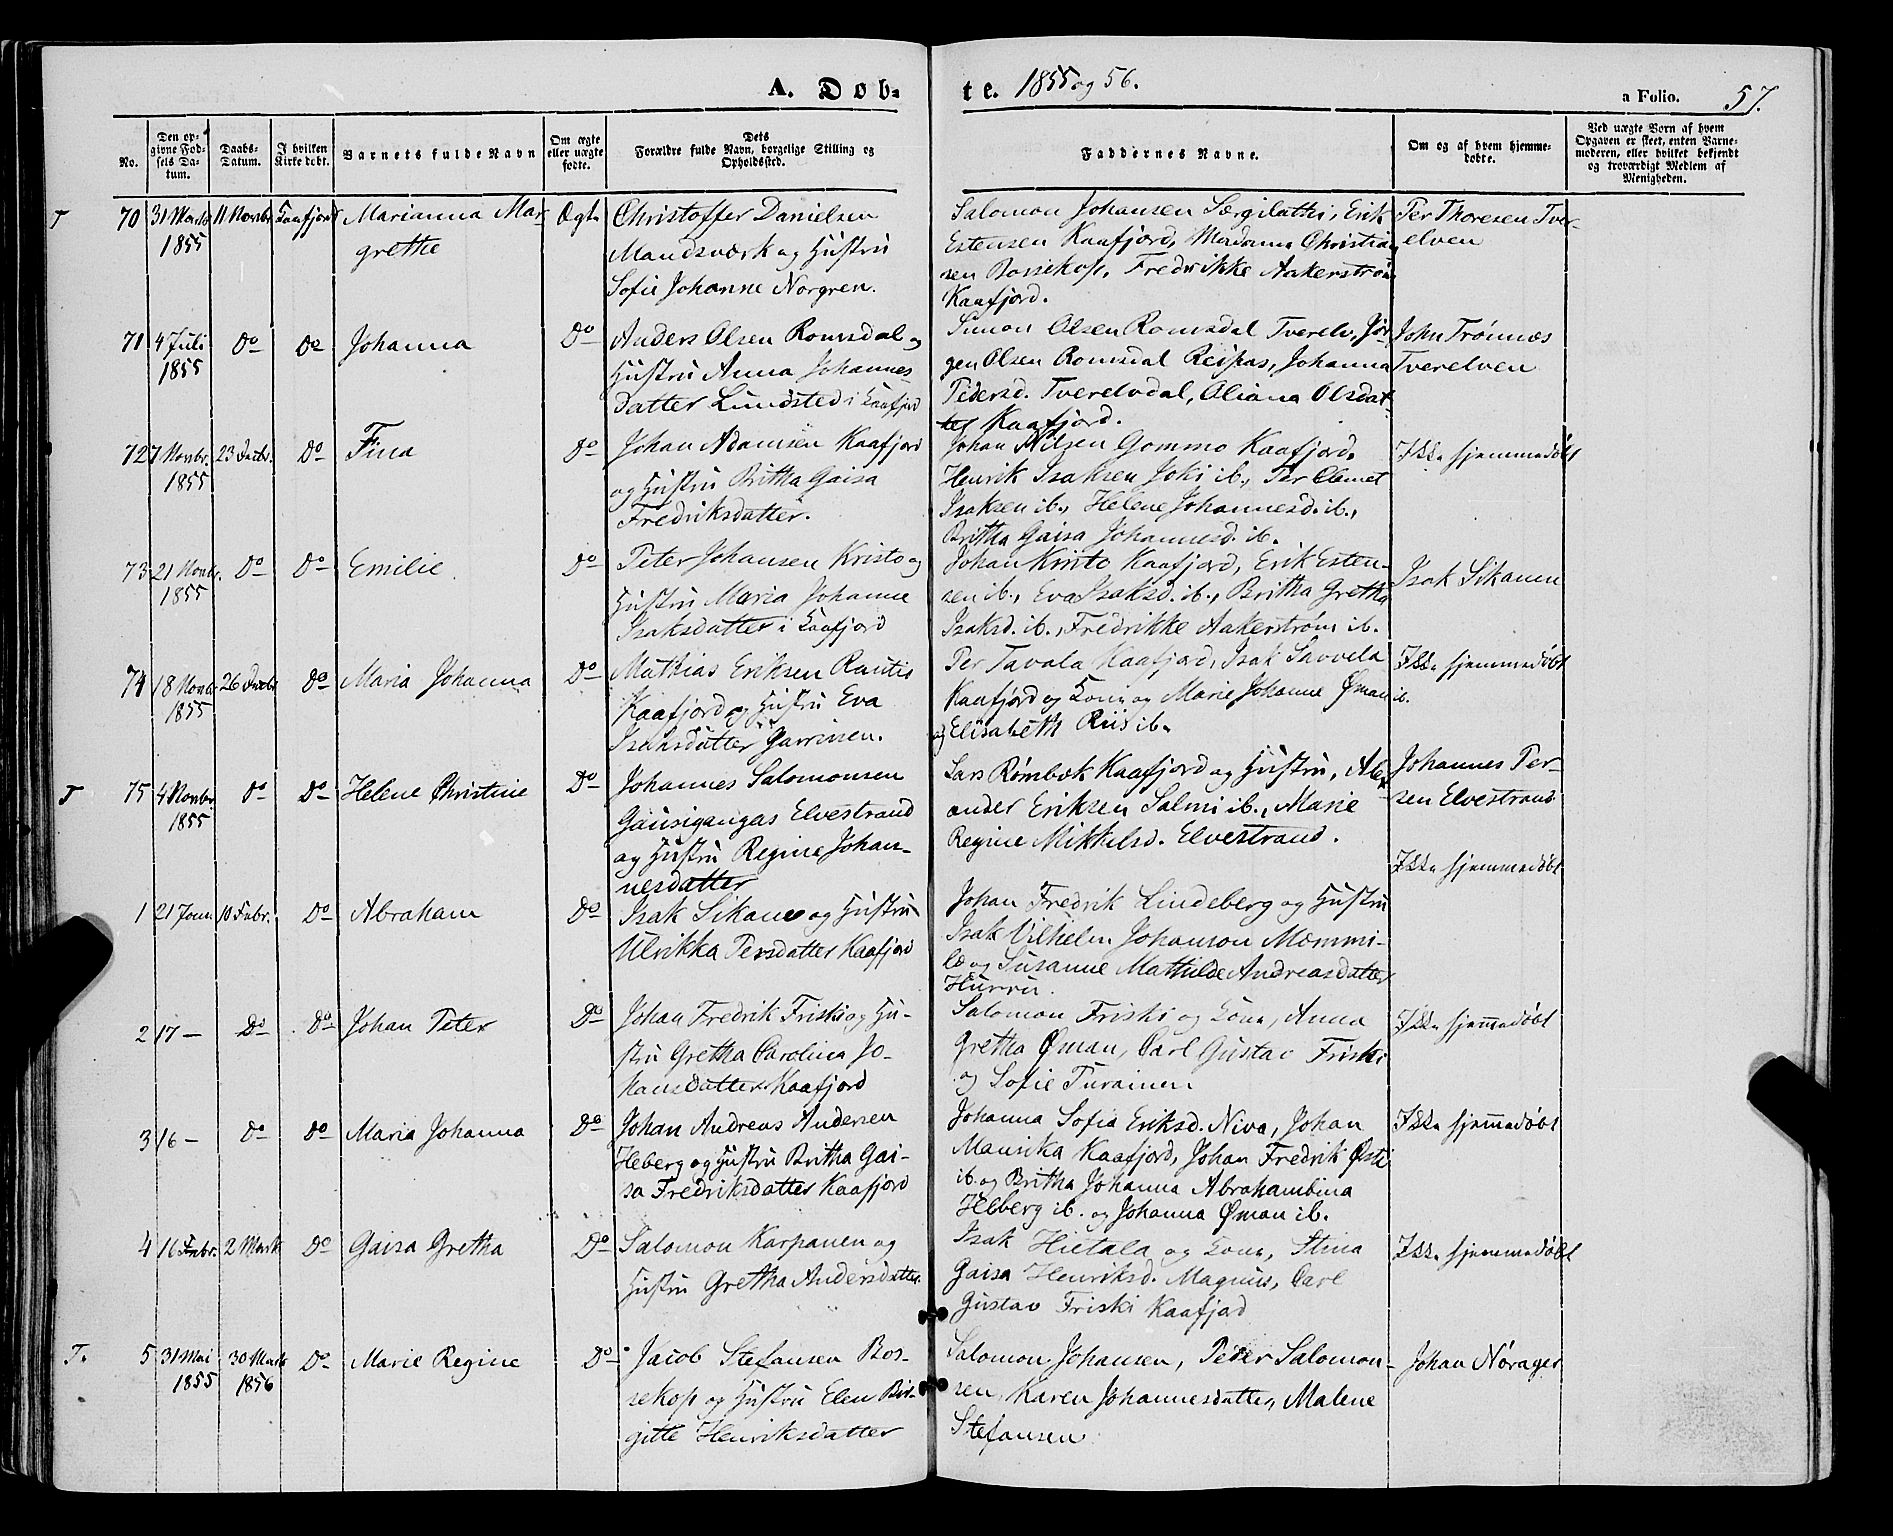 A. Døb-
te. 1855 og 56.
a Folio. 57.
No.
Den op-
givne Fød-
sels Da-
tum.
Daabs-
Datum.
I hvilken
Kirke døbt.
Barnets fulde Navn
Om ægte
eller uægte
fødte.
Dets
Forældre fulde Navn, borgelige Stilling og
Opholdssted.
Faddernes Navne.
Om og af hvem hjemme-
døbte.
Ved uægte Børn af hvem
Opgaven er skeet, enten Barne-
moderen, eller hvilket bekjendt
og troværdigt Medlem af
Menigheden.
T 70 31 Marts 11 Novbr. Kaafjord Marianna Mar- Ægte Christoffer Danielsen
1855 grethe Mandsværk og Hustru
Sofie Johanne Norgren.
Salomon Johansen Særgilathi, Erik
Estensen Kaafjord, Madame Christian-
sen Bossekop, Fredrikke Aakerstrøm
Kaafjord.
Per Thoresen Tver-
elven
71 4 Juli Do Do Johanna Do Anders Olsen Romsdal og
1855 Hustru Anna Johannes-
datter Lundsted i Kaafjord
Simon Olsen Romsdal Tverelv, Jør-
gen Olsen Romsdal Reipas, Johanna
Pedersd. Tverelvdal, Oliana Olsdat-
ter Kaafjord.
John Trønnæs
Tverelven
72 7 Novbr. 23 Decbr. Do Fina Do Johan Adamsen Kaafjord
1855 og Hustru Britha Gaisa
Fredriksdatter.
Johan Nilsen Gommo Kaafjord.
Henrik Isaksen Joki ib., Per Clemet
Isaksen ib., Helene Johannesd. ib.,
Britha Gaisa Johannesd. ib.
Ikke hjemmedøbt
73 21 Novbr. Do Do Emilie Do Peter Johansen Kristo og
1855 Hustru Maria Johanne
Isaksdatter i Kaafjord
Johan Kristo Kaafjord, Erik Esten-
sen ib., Eva Isaksd. ib., Britha Gretha
Isaksd. ib., Fredrikke Aakerstrøm ib.
Isak Sikanen
74 18 Novbr. 26 Decbr. Do Maria Johanna Do Mathias Eriksen Rautis
1855 Kaafjord og Hustru Eva
Isaksdatter Garrinen.
Per Tavala Kaafjord, Isak Savvela
Kaafjord og Kone og Marie Johanne Øman ib.
og Elisabeth Riis ib.
Ikke hjemmedøbt
T 75 4 Novbr. Do Do Helene Christine Do Johannes Salomonsen
1855 Gausigangas Elvestrand
og Hustru Regine Johan-
nesdatter
Lars Rømbæk Kaafjord og Hustru, Alex-
ander Eriksen Salmi ib., Marie
Regine Mikkelsd. Elvestrand.
Johannes Per-
sen Elvestrand
1 21 Janu. 10 Febr. Do Abraham Do Isak Sikane og Hustru
Ulrikka Persdatter Kaafjord
Johan Fredrik Lindeberg og Hustru
Isak Vilhelm Johanson Mæmmi-
læ og Susanne Mathilde Andreasdatter
Hurru.
Ikke hjemmedøbt
2 17 — Do Do Johan Peter Do Johan Fredrik Friski og Hu-
stru Gretha Carolina Jo-
hansdatter Kaafjord
Salomon Friski og Kone, Anna
Gretha Øman, Carl Gustav Friski
og Sofie Turainen
Ikke hjemmedøbt
3 16 — Do Do Maria Johanna Do Johan Andreas Andersen
Heberg og Hustru Britha Gai-
sa Fredriksdatter Kaafjord
Johanna Sofia Eriksd. Niva, Johan
Mausika Kaafjord, Johan Fredrik Østi
ib. og Britha Johanna Abrahambina
Heberg ib. og Johanna Øman ib.
Ikke hjemmedøbt
4 16 Febr. 2 Marts Do Gaisa Gretha Do Salomon Karpanen og
Hustru Gretha Andersdatter.
Isak Hietala og Kone, Stina
Gaisa Henriksd. Magnus, Carl
Gustav Friski Kaafjord
Ikke hjemmedøbt
T. 5 31 Mai 30 Marts Do Marie Regine Do Jacob Stefansen Bos-
1855 1856 sekop og Hustru Elen Bir-
gitte Henriksdatter
Salomon Johansen, Peder Salomon-
sen, Karen Johannesdatter, Malene
Stefansen
Johan Nørager